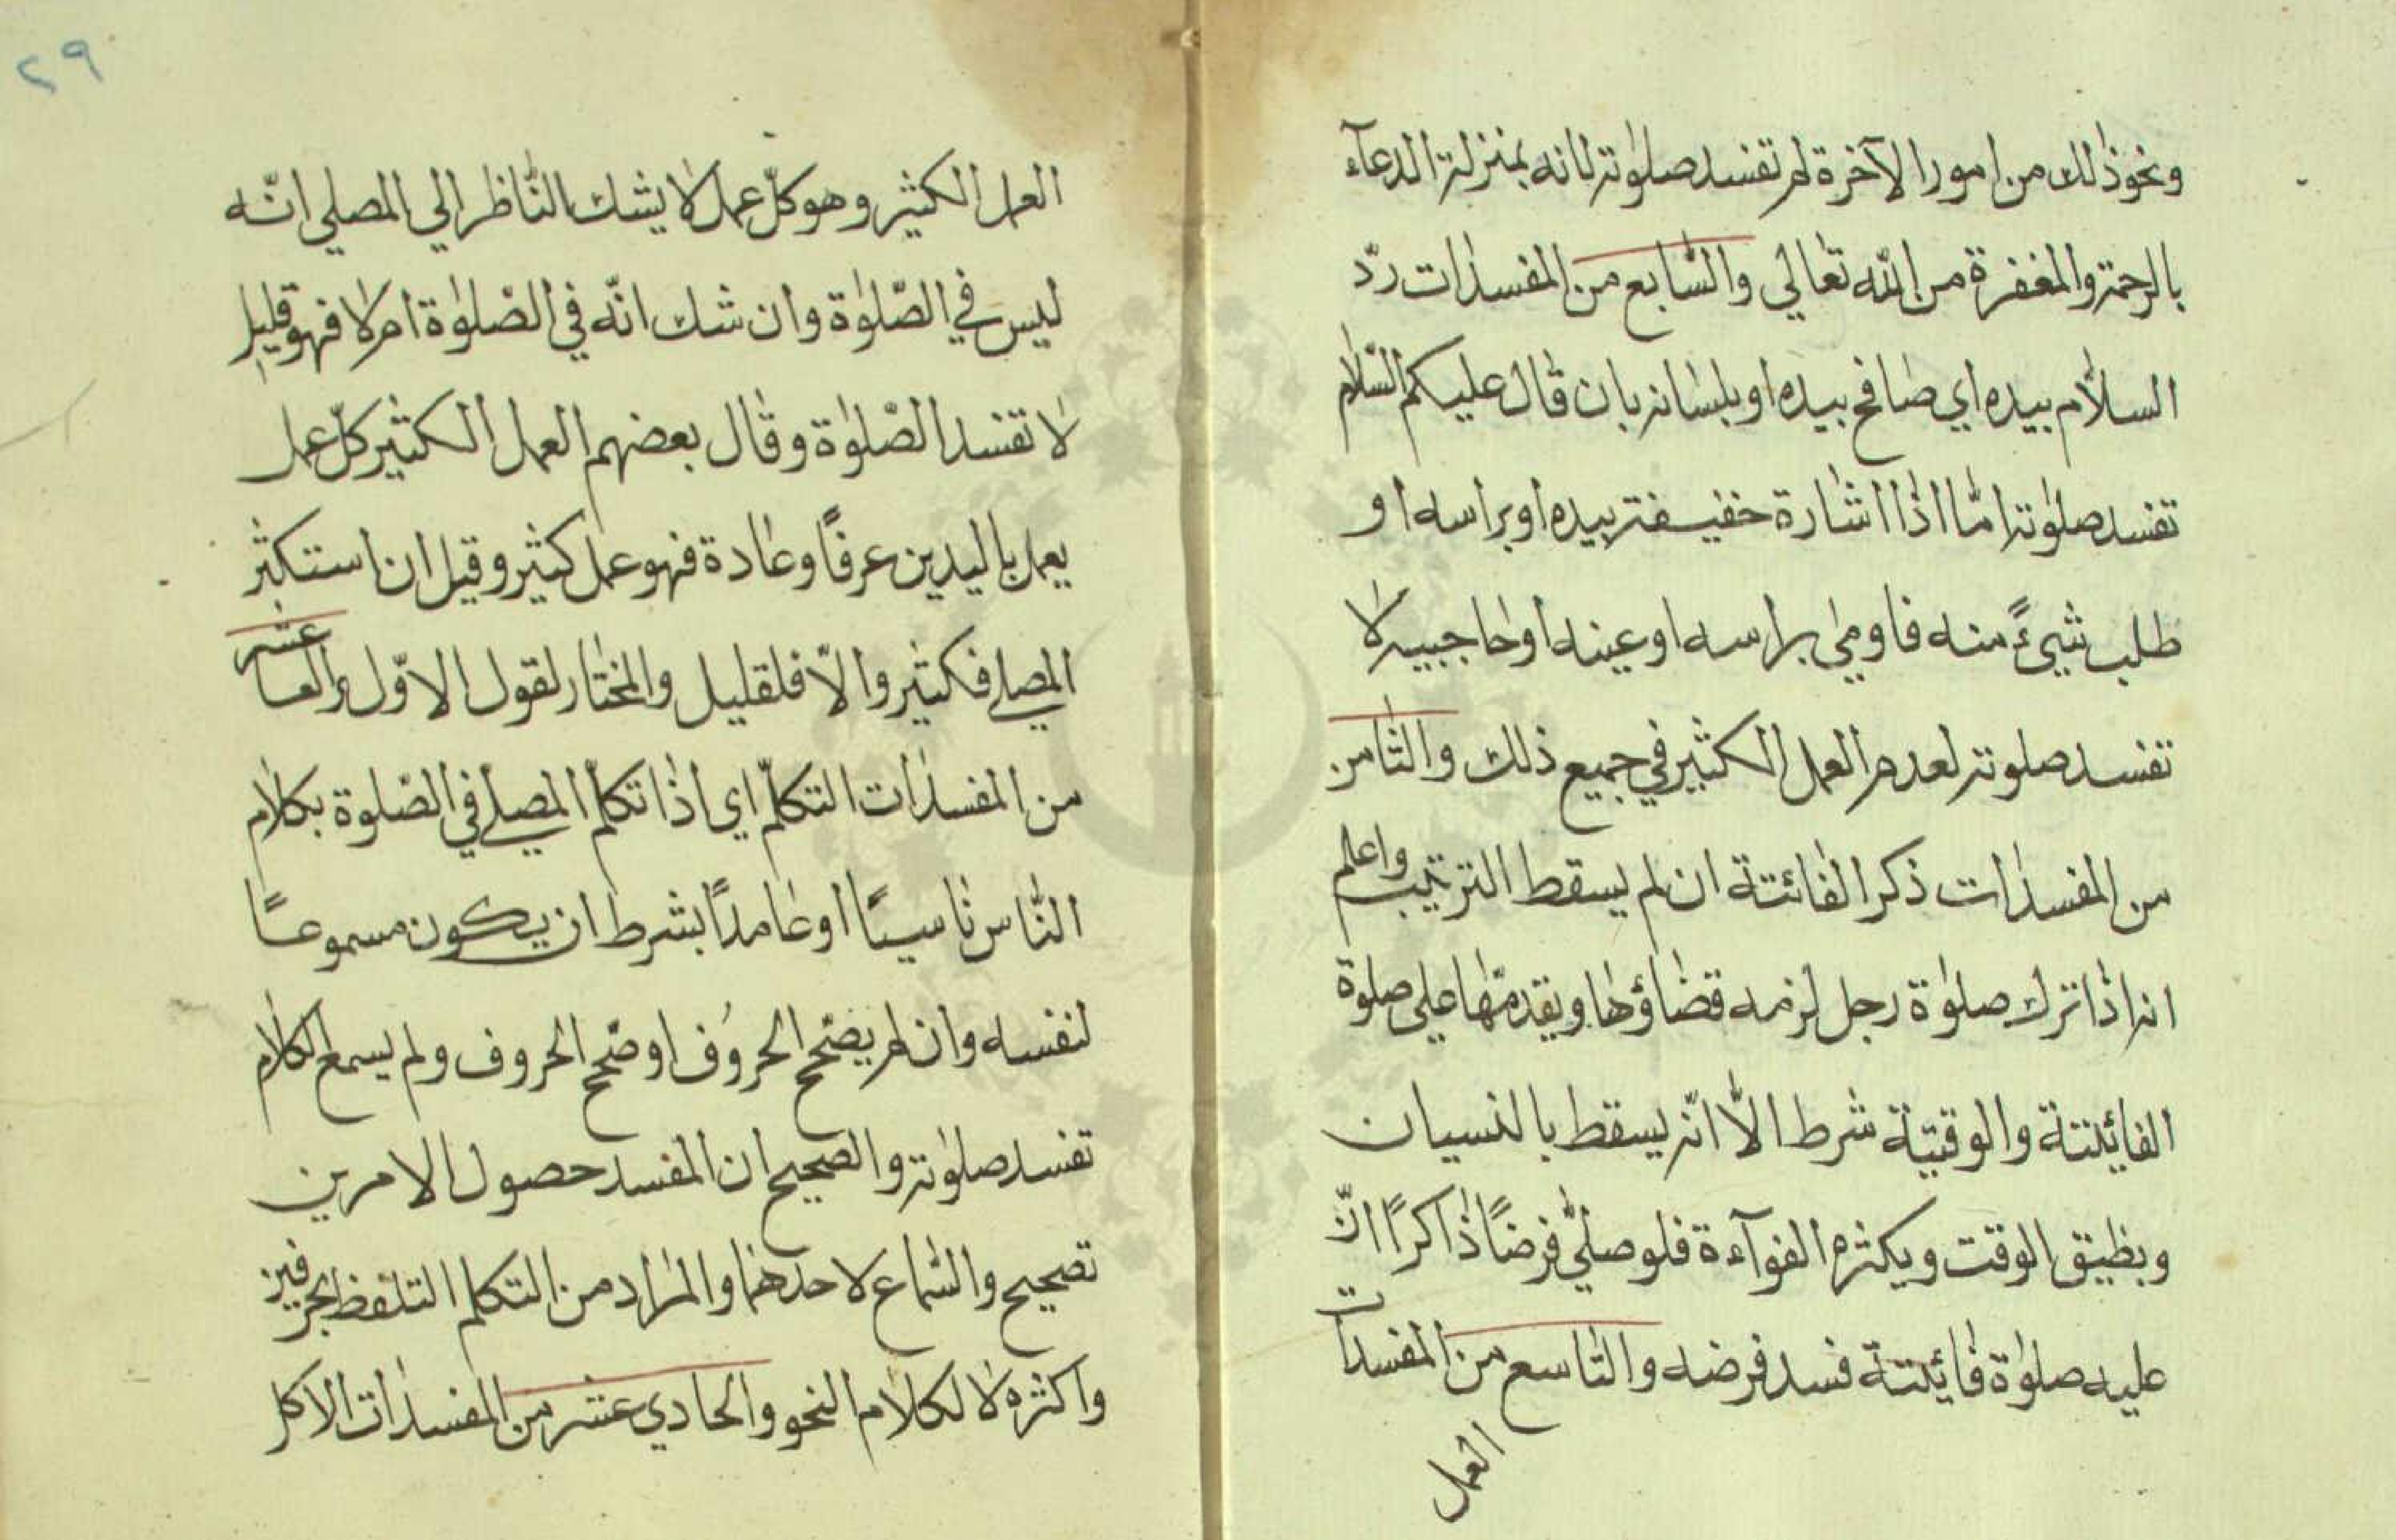 ونحو ذٰلك من امور الاٰخرة لم تفسد صلوٰته لانه بمنزلة الدعآء
بالرحمة والمغفرة من اللّه تعٰالي والسّٰابع من المفسدٰات ردّ
السلاٰم بيده اي صٰافح بيده او بلسٰانه بان قٰال عليكم السّلاٰم
تفسد صلوٰته امّٰا اذٰا اشٰارة خفيفة بيده او براسه او
طلب شيئً منه فاومي براسه او عينه او حٰاجبيه لاٰ
تفسد صلوته لعدم العمل الكثير في جميع ذلك والثٰامن
من المفسدٰات ذكر الفٰائتة ان لم يسقط الترتيب واعلم
انه اذٰا ترك صلوٰة رجل لزمه قضٰاؤهٰا ويقدمّهٰا علي صلوة
الفٰايئتة والوقتيّة شرط الاّٰ انّه يسقط بالنسيان
وبظيق الوقت ويكثره الفوآءة فلو صلّي فرضًا ذٰاكرًا انّ
عليه صلوٰة فٰايئتة فسد فرضه والتٰاسع من المفسدات
العمل
٢٩
العمل الكثير وهو كلّ عمل لاٰ يشك النّٰاظر الي المصلي انّه
ليس في الصّلوٰة وان شك انّه في الصّلوٰة ام لاٰ فهو قليل
لاٰ تفسد الصّلوٰة وقٰال بعضهم العمل الكثير كلّ عمل
يعمل باليدين عرفًا وعٰادة فهو عمل كثير وقيل ان استكثر
المصلي فكثير والاّ فلقليل والمختٰار لقول الاوّل والعٰاشر
من المفسدٰات التكلّم اي اذٰا تكلّم المصلي في الصّلوة بكلاٰم
النّٰاس نٰاسيًا او عٰامدًا بشرط ان يكون مسموعًا
لنفسه وان لم يصّحح الحروُف او صّحح الحروف ولم يسمع الكلاٰم
تفسد صلوٰته والصحيح ان المفسد حصول الامرين
تصحيح والسّماع لاحدهمٰا والمرٰاد من التكلم التلفظ بحرفين
واكثره لاٰ لكلام النحو والحادي عشر من المفسدٰات الاكل